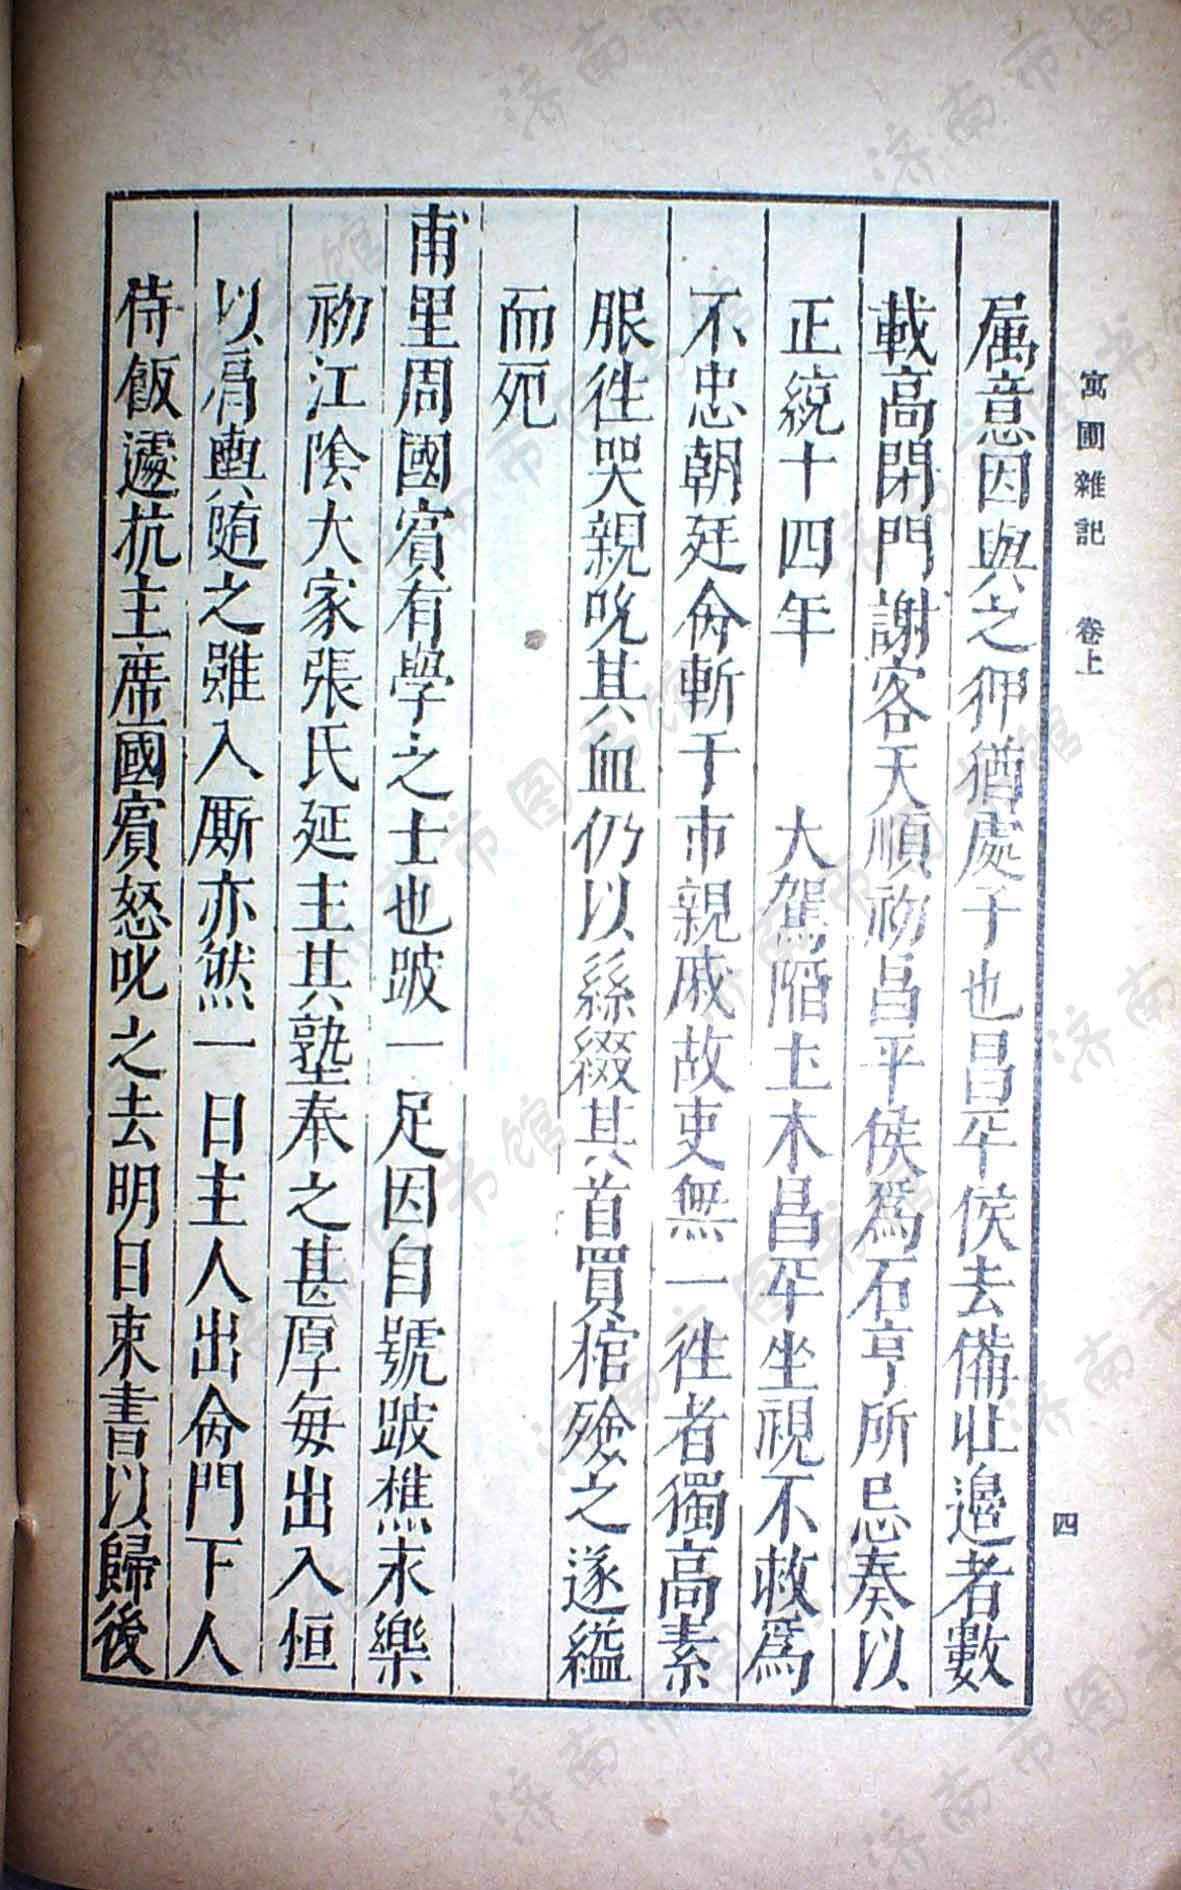 寓圃雜記　卷上
四
属意因與之狎猶處子也昌平侯去備壯邊者數
載高閉門謝客天順初昌平侯爲石亨所忌奏以
正統十四年　大駕陷土木昌平坐視不救爲
不忠朝廷命斬于市親戚故吏無一往者獨高素
服往哭親吮其血仍以絲綴其首買棺殮之遂縊
而死
甫里周國賓有學之士也跛一足因自號跛樵永樂
初江陰大家張氏延主其塾奉之甚厚每出入恒
以肩輿随之雖入厮亦然一日主人出命門下人
侍飯遽抗主席國賓怒叱之去明日束書以歸後
济南市图书馆